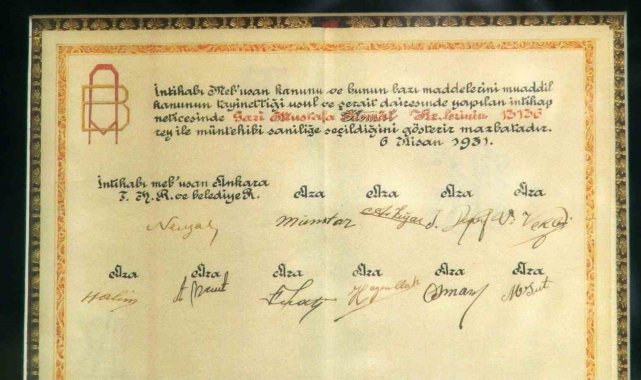 AB
İntihabı Meb'usan kanunu ve bunun bazı maddelerini muaddil
kanunun tayinettiği usul ve şerait dairesinde yapılan intihap
neticesinde Gazi Mustafa Kemal Hz.lerinin 13136
rey ile müntehibi saniliğe seçildiğini gösterir mazbatadır.
6 Nisan 1931.
İntihabı meb'usan Ankara
T. H. R. ve belediye R. Aza Aza Aza Aza
Nevzat Mümtaz
Aza Aza Aza Aza Aza Aza
Halim Hayrullah Osman